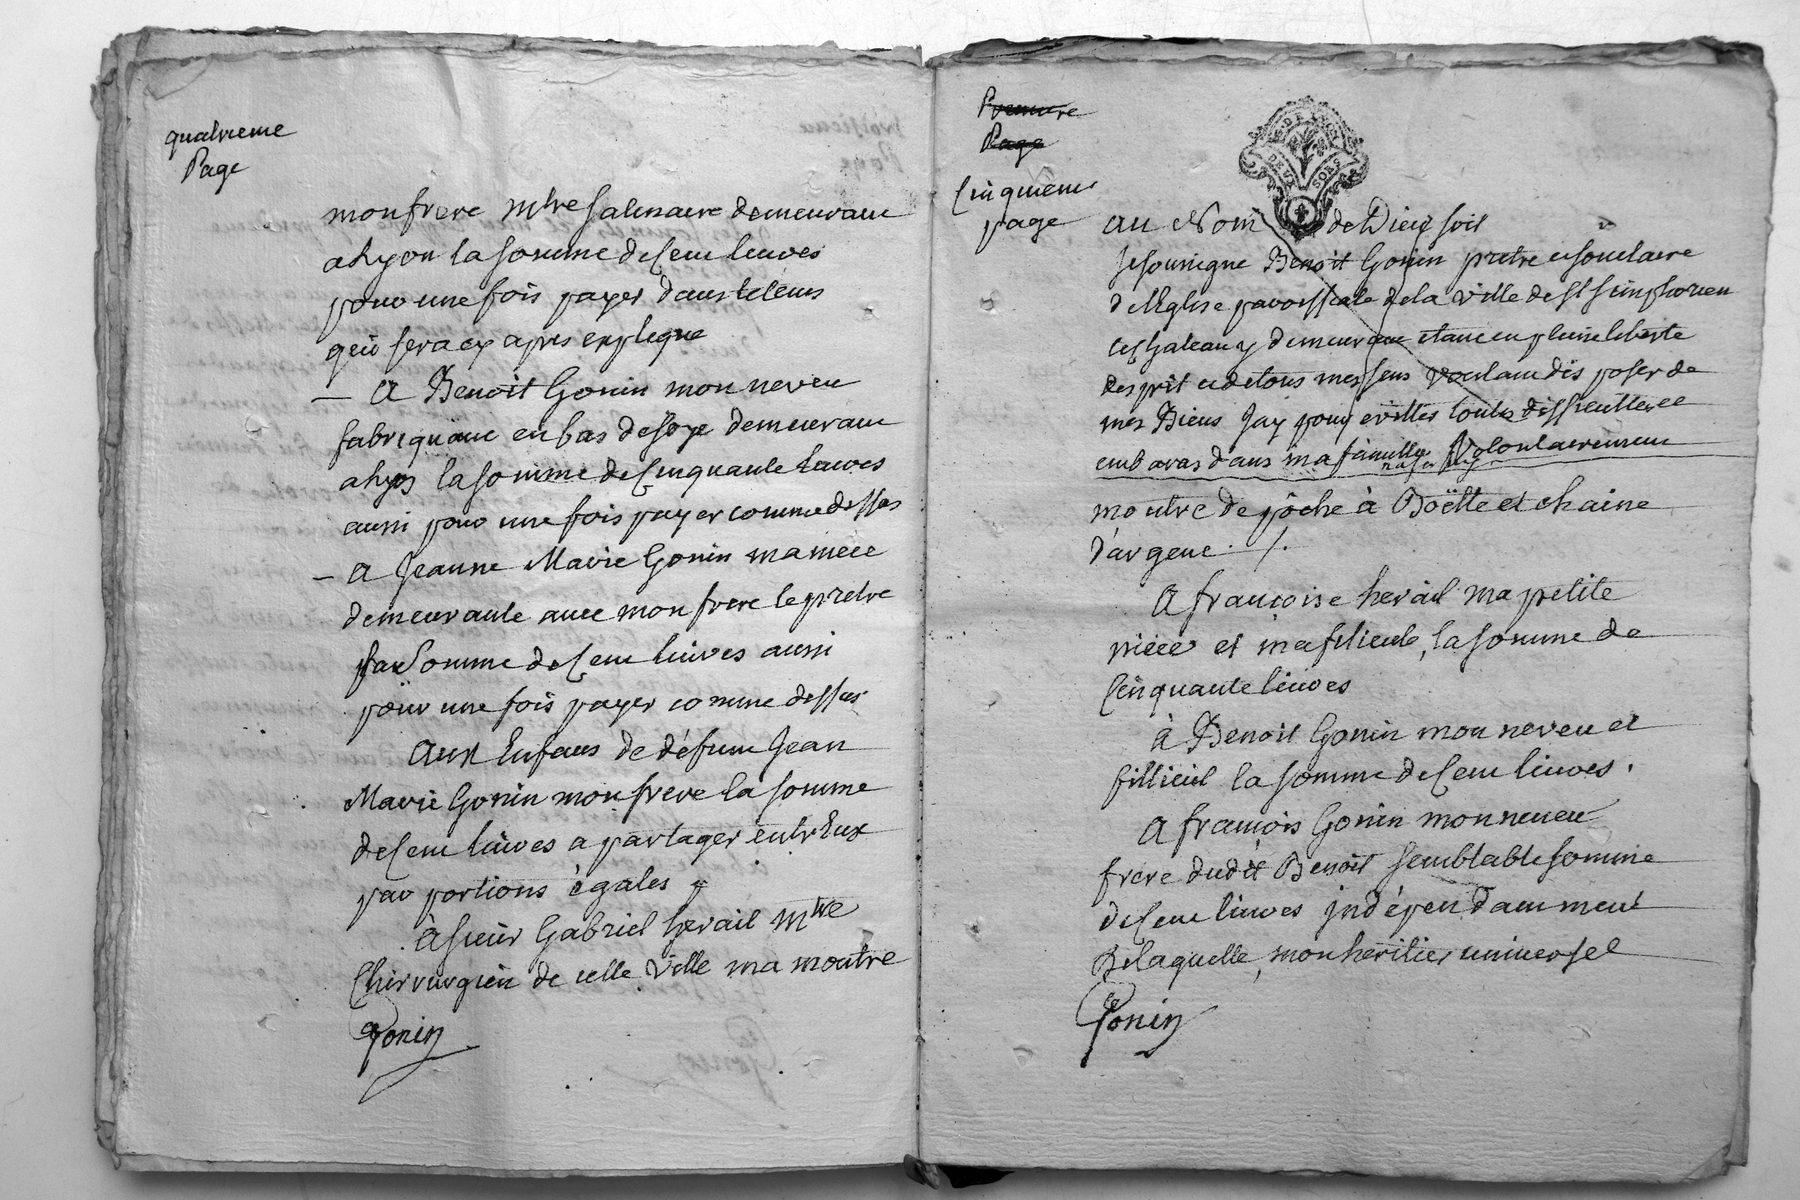 quatrieme
Page
mon frere mtre salinaire demeurant
a Lyon la somme de Cent livres
pour une fois payer dans le tems
qui sera cy apres expliqué
— A Benoit Gonin mon neveu
fabriquant en bas de soye demeurant
a Lyon la somme de Cinquante Livres
aussi pour une fois payer comme dessus
— a Jeanne Marie Gonin ma niece
demeurante avec mon frere le pretre
la Somme de Cent livres aussi
pour une fois payer comme dessus
Aux Enfans de défunt Jean
Marie Gonin mon frere la somme
de Cent livres a partager entr'Eux
par portions égales
à sieur Gabriel herail mtre
Chirurgien de cette Ville ma montre
Gonin
Premiere
Page
Cinquieme
page
DE LYON
DEUX SOLS
au Nom de Dieu soit
Je soussigne Benoit Gonin pretre et societaire
de l'Eglise paroissiale de la ville de St simphorien
le Chateau y demeurant etant en pleine liberte
desprit et de tous mes sens voulant disposer de
mes Biens Jay pour eviter toutes difficultes et
embaras dans ma famille Volontairement
montre de pôche à Boëtte et chaine
d'argent ./.
A francoise herail ma petite
niéce et ma filieule, la somme de
Cinquante livres
à Benoit Gonin mon neveu et
fillieul la somme de Cent livres.
A francois Gonin mon neveu
frere dudit Benoit semblable somme
de Cent livres indépendamment
de laquelle, mon héritier universel
Gonin